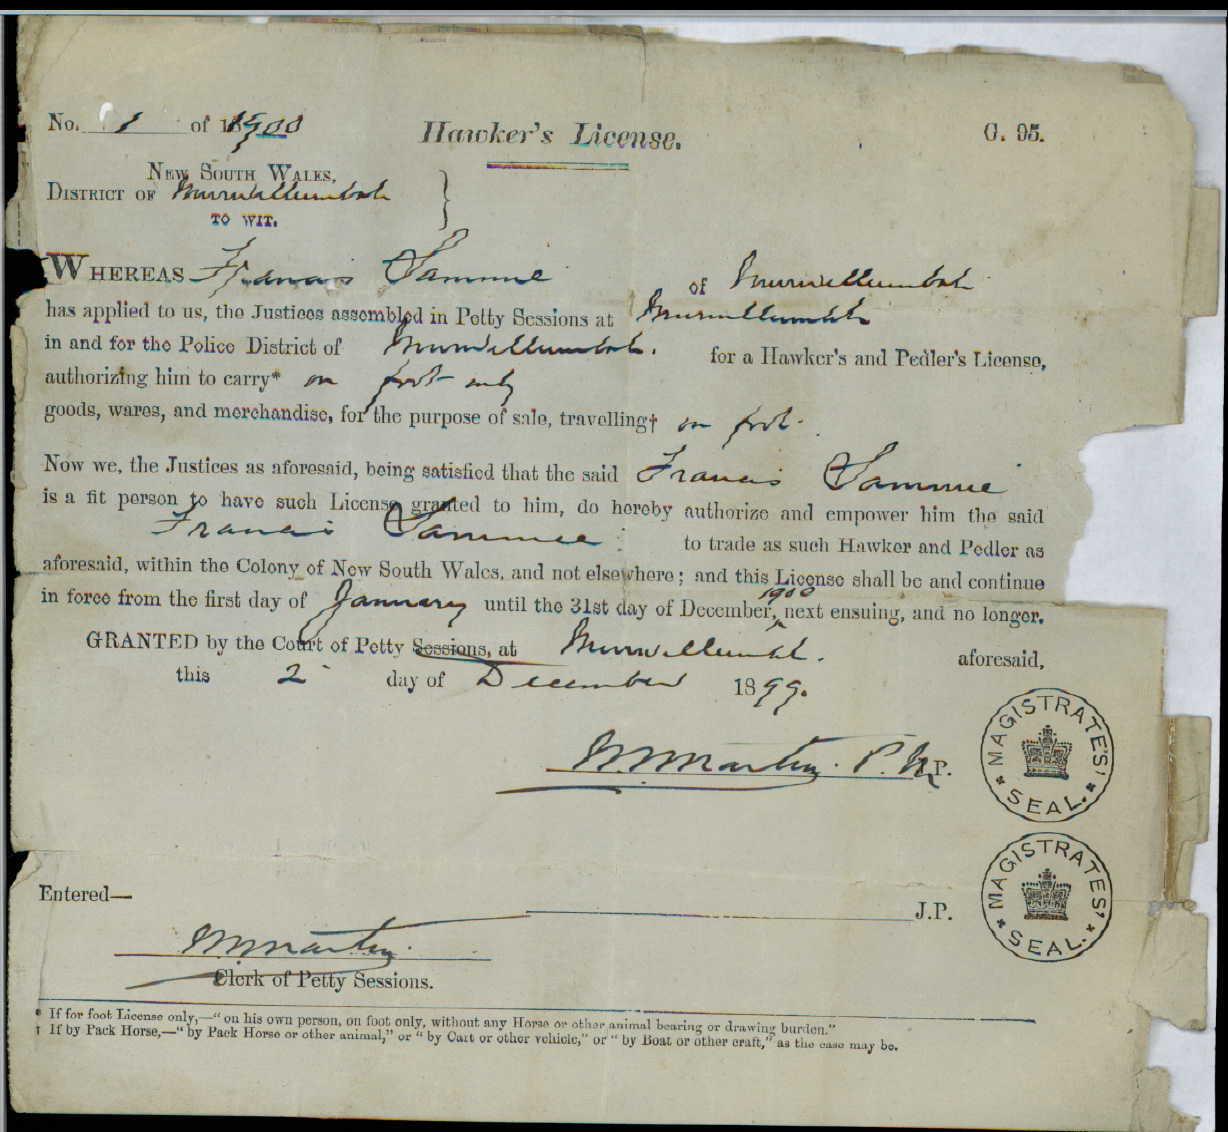 No. 1 of 1900
Hawker's License.
G. 95.
NEW SOUTH WALES,
DISTRICT OF Murwillumbah
TO WIT.
WHEREAS Francis Sammie of Murwillumbah
has applied to us, the Justices assembled in Petty Sessions at Murwillumbah
in and for the Police District of Murwillumbah. for a Hawker's and Pedler's License,
authorizing him to carry* on foot only
goods, wares, and merchandise, for the purpose of sale, travelling† on foot.
Now we, the Justices as aforesaid, being satisfied that the said Francis Sammie
is a fit person to have such License granted to him, do hereby authorize and empower him the said
Francis Sammie to trade as such Hawker and Pedler as
aforesaid, within the Colony of New South Wales, and not elsewhere; and this License shall be and continue
in force from the first day of January until the 31st day of December, 1900 next ensuing, and no longer.
GRANTED by the Court of Petty Sessions, at Murwillumbah. aforesaid,
this 2 day of December 1899.
Martin. P.M. J.P.
MAGISTRATES' SEAL.
Entered—
J.P.
MAGISTRATES' SEAL.
Martin.
Clerk of Petty Sessions.
* If for foot License only,—"on his own person, on foot only, without any Horse or other animal bearing or drawing burden."
† If by Pack Horse,—"by Pack Horse or other animal," or "by Cart or other vehicle," or "by Boat or other craft," as the case may be.